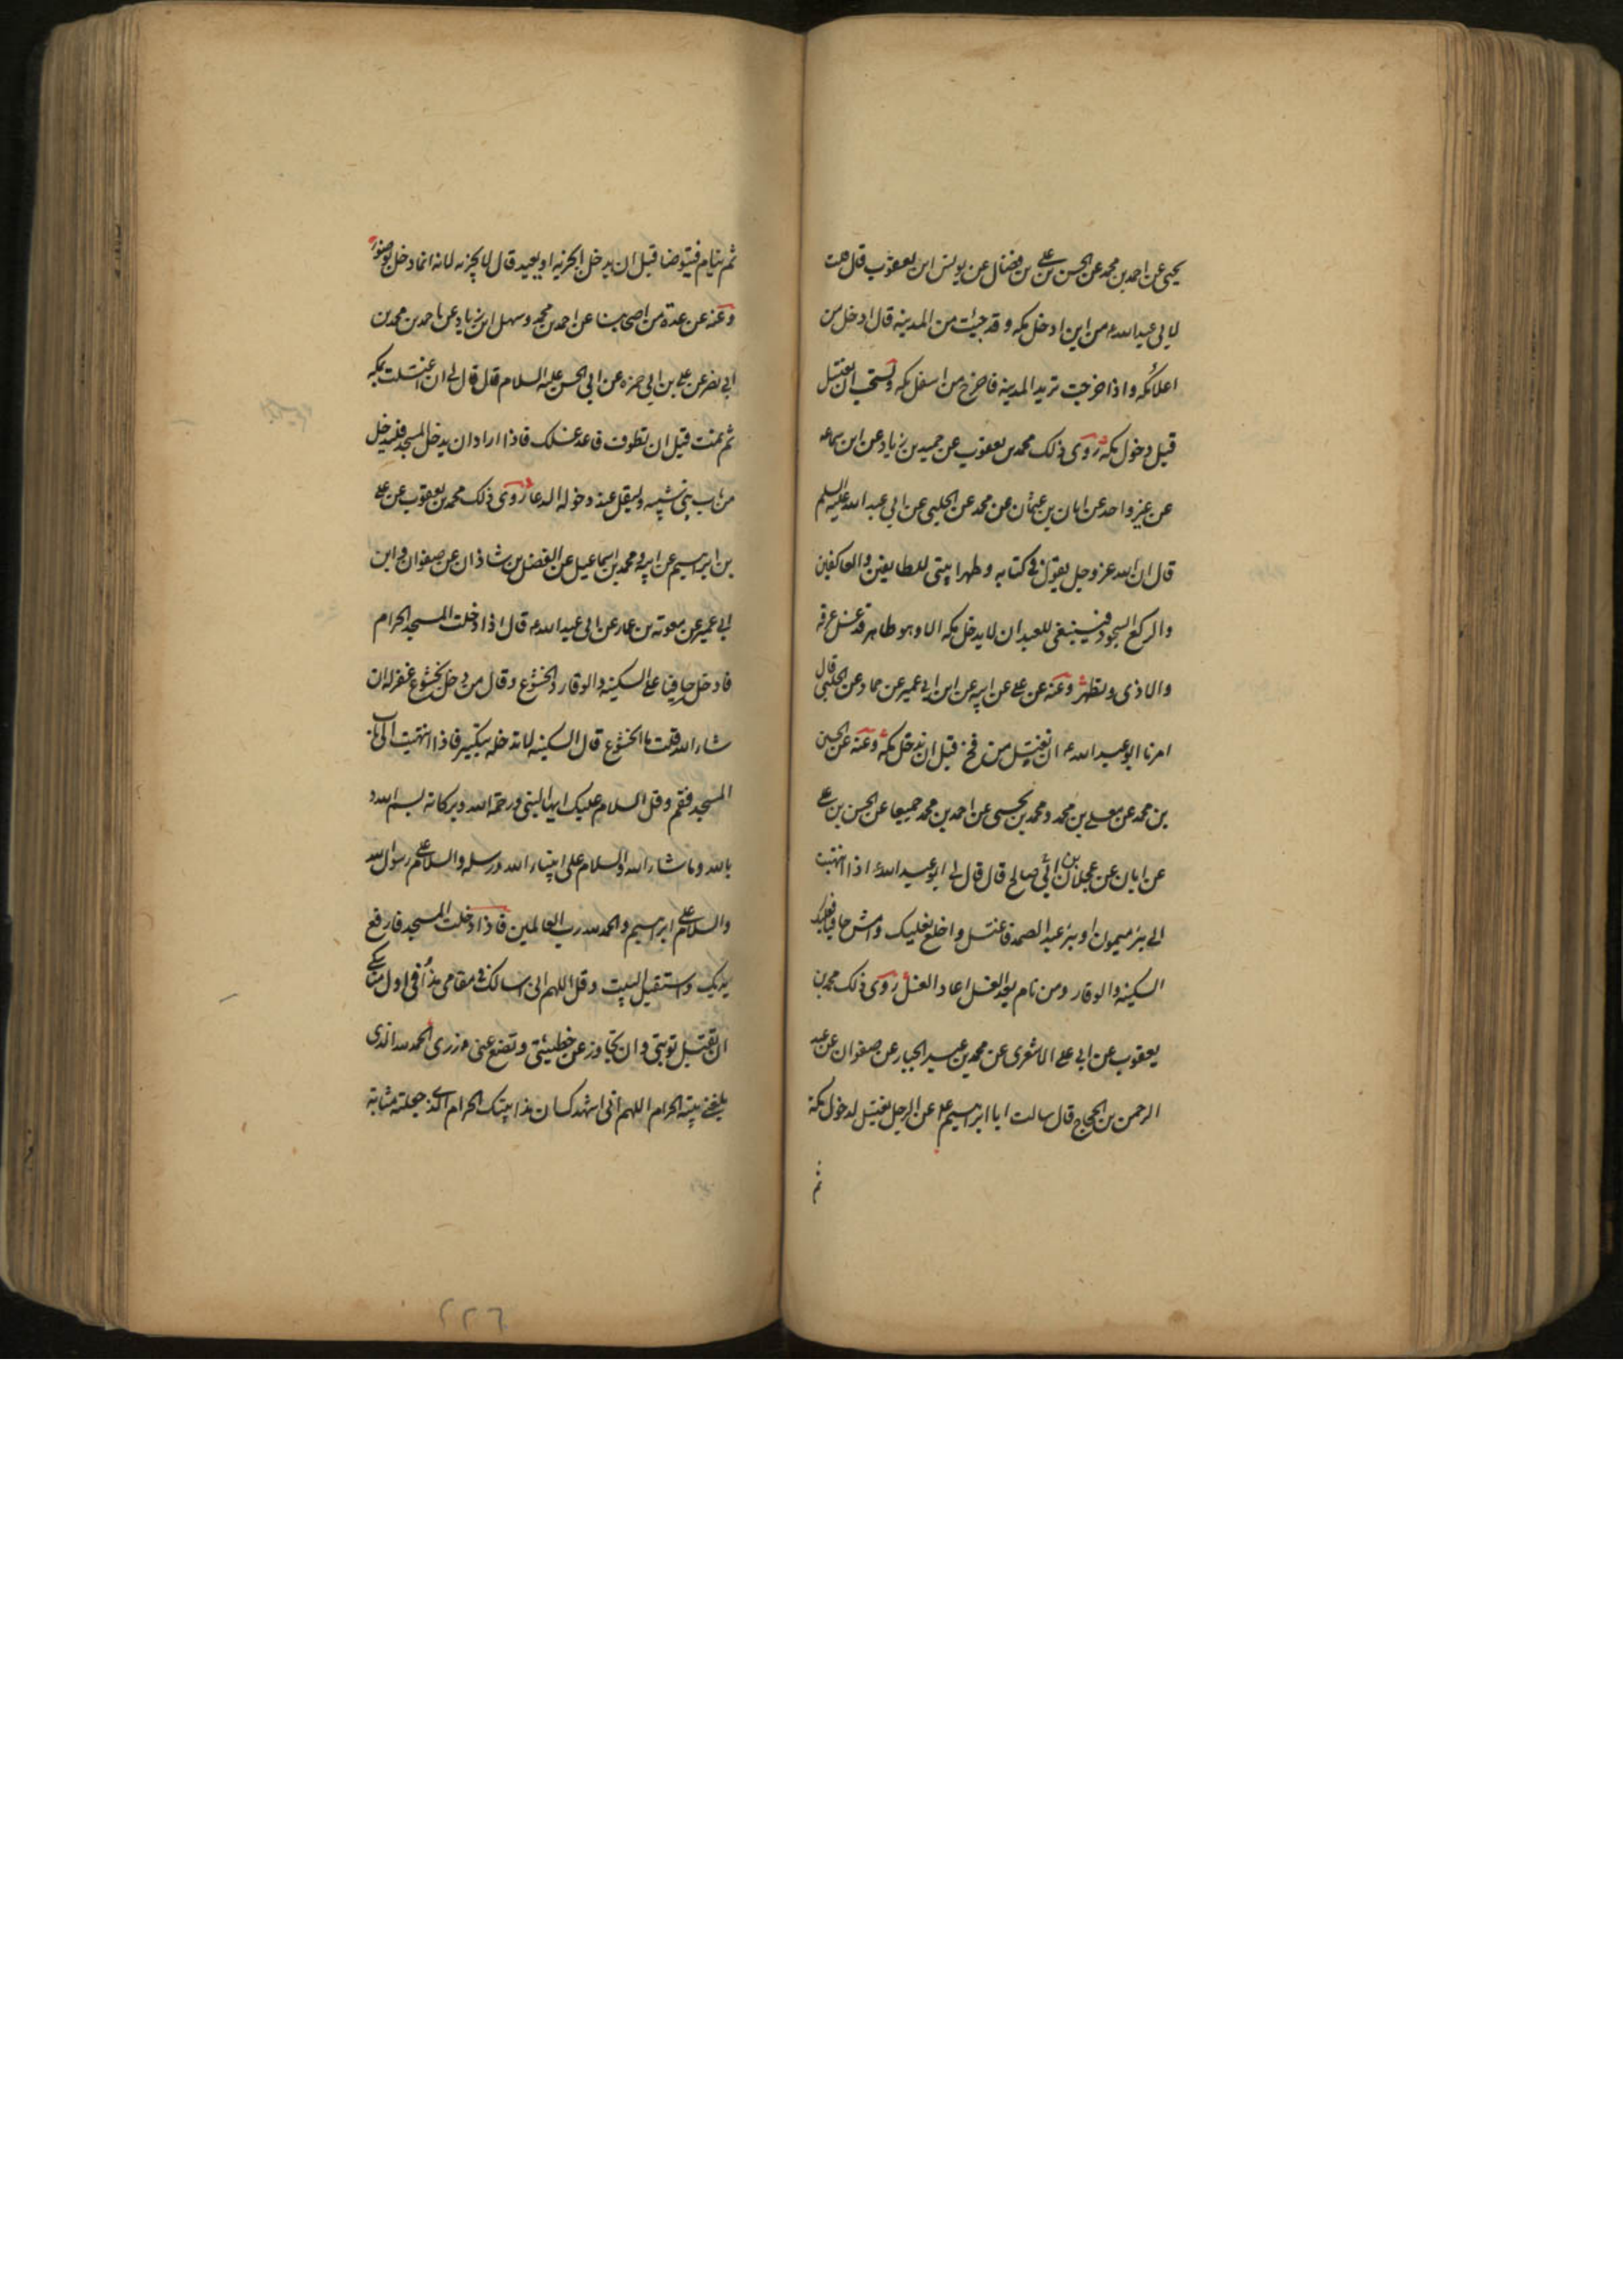 يحيى عن احمد بن محمد عن الحسن بن علي بن فضال عن يونس ابن يعقوب قال قلت
لابي عبدالله ع من اين ادخل مكه و قد جئت من المدينه قال ادخل من
اعلا مكه و اذا خرجت تريد المدينه فاخرج من اسفل مكه و يستحب ان يغتسل
قبل دخول مكه روى ذلك محمد بن يعقوب عن حميد بن زياد عن ابن سماعه
عن غير واحد عن ابان بن عثمان عن محمد عن الحلبي عن ابي عبد الله عليه السلم
قال ان الله عز وجل يقول في كتابه و طهرا بيتي للطايفين و العاكفين
والركع السجود فينبغي للعبد ان لا يدخل مكه الا وهو طاهر قد غسل عرقه
والاذى و تطهر وعنه عن علي عن ابيه عن ابن ابي عمير عن حماد عن الحلبي قال
امرنا ابو عبد الله ع ان نغتسل من فخ قبل ان ندخل مكه وعنه عن الحسين
بن محمد عن معلى بن محمد و محمد بن يحيى عن احمد بن محمد جميعا عن الحسن بن علي
عن ابان عن عجلان بن ابي صالح قال قال لي ابو عبد الله ع اذا انتهيت
الى بئر ميمون او بئر عبد الصمد فاغتسل و اخلع نعليك و امش حافيا و عليك
السكينه و الوقار و من نام بعد الغسل اعاد الغسل روى ذلك محمد بن
يعقوب عن ابي علي الاشعري عن محمد بن عبد الجبار عن صفوان عن عبد
الرحمن بن الحجاج قال سالت ابا ابراهيم ع عن الرجل يغتسل لدخول مكة
ثم
ثم ينام فيتوضا قبل ان يدخل ايجزيه او يعيد قال لا يجزيه لانه انما دخل بوضوء
وعنه عن عدة من اصحابنا عن احمد بن محمد و سهل ابن زياد عن احمد بن محمد بن
ابي نصر عن علي بن ابي حمزه عن ابي الحسن عليه السلام قال قال لي ان اغتسلت بمكه
ثم نمت قبل ان تطوف فاعد غسلك فاذا اراد ان يدخل المسجد فليدخل
من باب بني شيبه و ليقل عند دخوله الدعا روى ذلك محمد بن يعقوب عن علي
بن ابراهيم عن ابيه و محمد بن اسماعيل عن الفضل بن شاذان عن صفوان و ابن
ابي عمير عن معوية بن عمار عن ابي عبد الله ع قال اذا دخلت المسجد الحرام
فادخل حافيا على السكينه و الوقار و الخشوع و قال من دخل بخشوع غفر له ان
شاء الله قلت ما الخشوع قال السكينه لا تدخله بتكبر فاذا انتهيت الى باب
المسجد فقم و قل السلام عليك ايها النبي و رحمة الله و بركاته بسم الله و
بالله و ما شاء الله و السلام على انبياء الله و رسله و السلام على رسول الله
والسلام على ابراهيم والحمد لله رب العالمين فاذا دخلت المسجد فارفع
يديك و استقبل البيت و قل اللهم اني اسالك في مقامي هذا في اول مناسكي
ان تقبل توبتي و ان تجاوز عن خطيئتي و تضع عني وزري الحمد لله الذي
بلغني بيته الحرام اللهم اني اشهدك ان هذا بيتك الحرام الذي جعلته مثابة